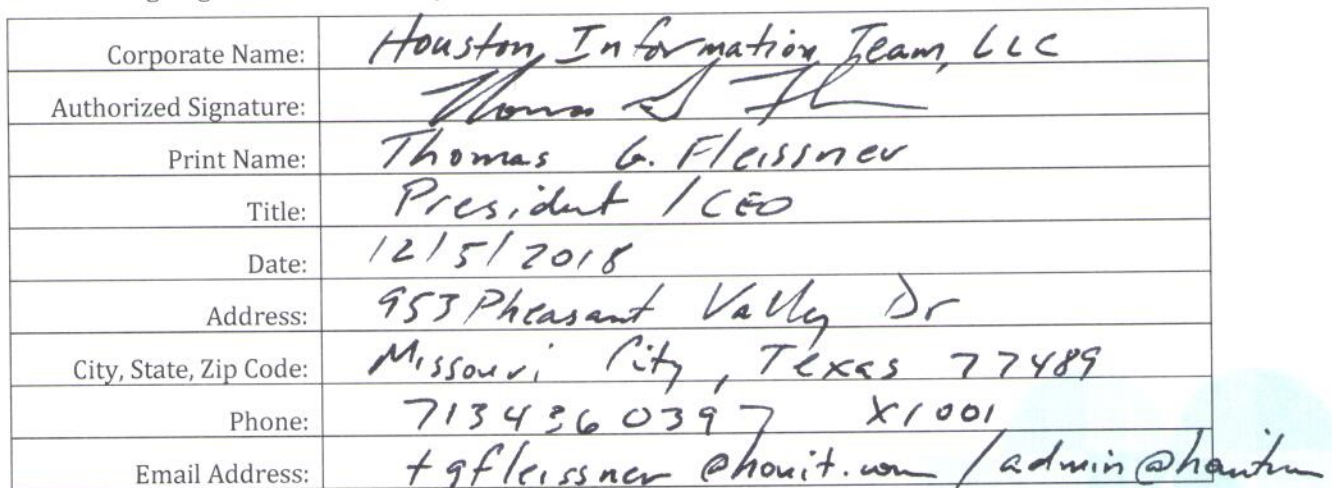 Corporate Name: Houston Information Team, LLC
Authorized Signature: Thomas G Fl
Print Name: Thomas G. Fleissner
Title: President / CEO
Date: 12/5/2018
Address: 953 Pheasant Valley Dr
City, State, Zip Code: Missouri City, Texas 77489
Phone: 713 436 0397 X1001
Email Address: tgfleissner@houit.com /admin@houit.com